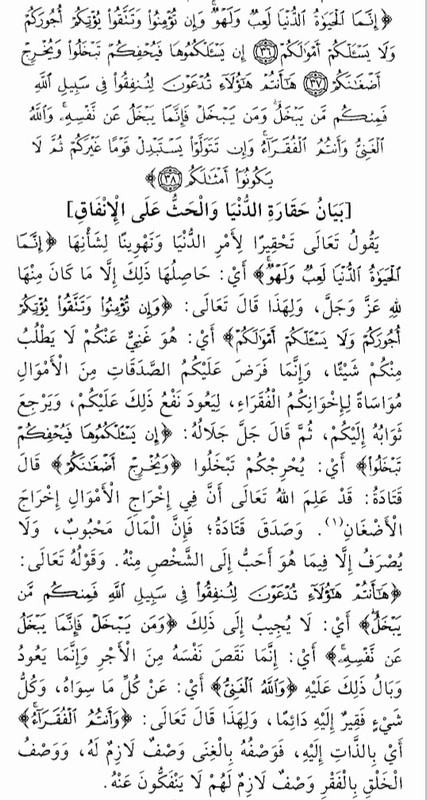 ﴿ إِنَّمَا الْحَيَوٰةُ الدُّنْيَا لَعِبٌ وَلَهْوٌ ۚ وَإِن تُؤْمِنُوا۟ وَتَتَّقُوا۟ يُؤْتِكُمْ أُجُورَكُمْ
وَلَا يَسْـَٔلْكُمْ أَمْوَٰلَكُمْ ﴿٣٦﴾ إِن يَسْـَٔلْكُمُوهَا فَيُحْفِكُمْ تَبْخَلُوا۟ وَيُخْرِجْ
أَضْغَـٰنَكُمْ ﴿٣٧﴾ هَـٰٓأَنتُمْ هَـٰٓؤُلَآءِ تُدْعَوْنَ لِتُنفِقُوا۟ فِى سَبِيلِ اللَّهِ
فَمِنكُم مَّن يَبْخَلُ ۖ وَمَن يَبْخَلْ فَإِنَّمَا يَبْخَلُ عَن نَّفْسِهِ ۚ وَاللَّهُ
الْغَنِىُّ وَأَنتُمُ الْفُقَرَآءُ ۚ وَإِن تَتَوَلَّوْا۟ يَسْتَبْدِلْ قَوْمًا غَيْرَكُمْ ثُمَّ لَا
يَكُونُوٓا۟ أَمْثَـٰلَكُم ﴿٣٨﴾ ﴾
[بَيَانُ حَقَارَةِ الدُّنْيَا وَالْحَثُّ عَلَى الْإِنْفَاقِ]
يَقُولُ تَعَالَى تَحْقِيرًا لِأَمْرِ الدُّنْيَا وَتَهْوِينًا لِشَأْنِهَا ﴿إِنَّمَا
الْحَيَوٰةُ الدُّنْيَا لَعِبٌ وَلَهْوٌ﴾ أَيْ: حَاصِلُهَا ذَلِكَ إِلَّا مَا كَانَ مِنْهَا
لِلهِ عَزَّ وَجَلَّ، وَلِهَذَا قَالَ تَعَالَى: ﴿وَإِن تُؤْمِنُوا۟ وَتَتَّقُوا۟ يُؤْتِكُمْ
أُجُورَكُمْ وَلَا يَسْـَٔلْكُمْ أَمْوَٰلَكُمْ﴾ أَيْ: هُوَ غَنِيٌّ عَنْكُمْ لَا يَطْلُبُ
مِنْكُمْ شَيْئًا، وَإِنَّمَا فَرَضَ عَلَيْكُمُ الصَّدَقَاتِ مِنَ الْأَمْوَالِ
مُوَاسَاةً لِإِخْوَانِكُمُ الْفُقَرَاءِ، لِيَعُودَ نَفْعُ ذَلِكَ عَلَيْكُمْ، وَيَرْجِعَ
ثَوَابُهُ إِلَيْكُمْ، ثُمَّ قَالَ جَلَّ جَلَالُهُ: ﴿إِن يَسْـَٔلْكُمُوهَا فَيُحْفِكُمْ
تَبْخَلُوا۟﴾ أَيْ: يُحْرِجْكُمْ تَبْخَلُوا ﴿وَيُخْرِجْ أَضْغَـٰنَكُمْ﴾ قَالَ
قَتَادَةُ: قَدْ عَلِمَ اللهُ تَعَالَى أَنَّ فِي إِخْرَاجِ الْأَمْوَالِ إِخْرَاجَ
الْأَضْغَانِ(١). وَصَدَقَ قَتَادَةُ؛ فَإِنَّ الْمَالَ مَحْبُوبٌ، وَلَا
يُصْرَفُ إِلَّا فِيمَا هُوَ أَحَبُّ إِلَى الشَّخْصِ مِنْهُ. وَقَوْلُهُ تَعَالَى:
﴿هَـٰٓأَنتُمْ هَـٰٓؤُلَآءِ تُدْعَوْنَ لِتُنفِقُوا۟ فِى سَبِيلِ اللَّهِ فَمِنكُم مَّن
يَبْخَلُ﴾ أَيْ: لَا يُجِيبُ إِلَى ذَلِكَ ﴿وَمَن يَبْخَلْ فَإِنَّمَا يَبْخَلُ
عَن نَّفْسِهِ﴾ أَيْ: إِنَّمَا نَقَصَ نَفْسَهُ مِنَ الْأَجْرِ وَإِنَّمَا يَعُودُ
وَبَالُ ذَلِكَ عَلَيْهِ ﴿وَاللَّهُ الْغَنِىُّ﴾ أَيْ: عَنْ كُلِّ مَا سِوَاهُ، وَكُلُّ
شَيْءٍ فَقِيرٌ إِلَيْهِ دَائِمًا، وَلِهَذَا قَالَ تَعَالَى: ﴿وَأَنتُمُ الْفُقَرَآءُ﴾
أَيْ بِالذَّاتِ إِلَيْهِ، فَوَصْفُهُ بِالْغِنَى وَصْفٌ لَازِمٌ لَهُ، وَوَصْفُ
الْخَلْقِ بِالْفَقْرِ وَصْفٌ لَازِمٌ لَهُمْ لَا يَنْفَكُّونَ عَنْهُ.